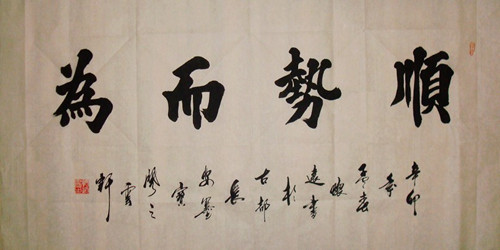 順勢而為
辛卯
年
孟春
曉
遠書
於
古都
長
安墨
寶
閣之
雲
軒